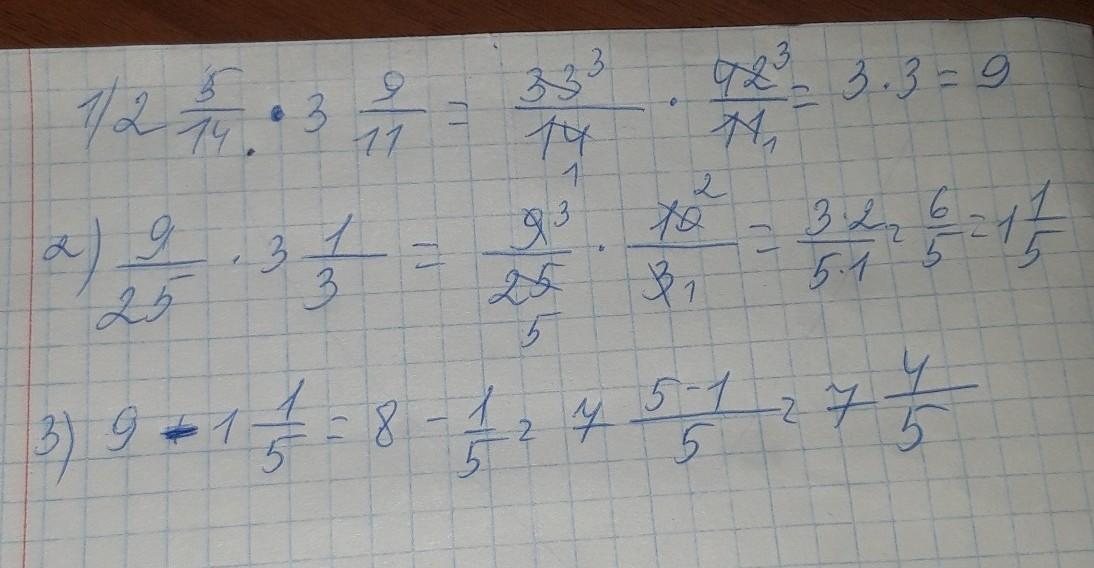 1) 2 5/14 · 3 9/11 = 33³/14₁ · 42³/11₁ = 3 · 3 = 9
2) 9/25 · 3 1/3 = 9³/25₅ · 10²/3₁ = 3·2/5·1 = 6/5 = 1 1/5
3) 9 - 1 1/5 = 8 - 1/5 = 7 5-1/5 = 7 4/5